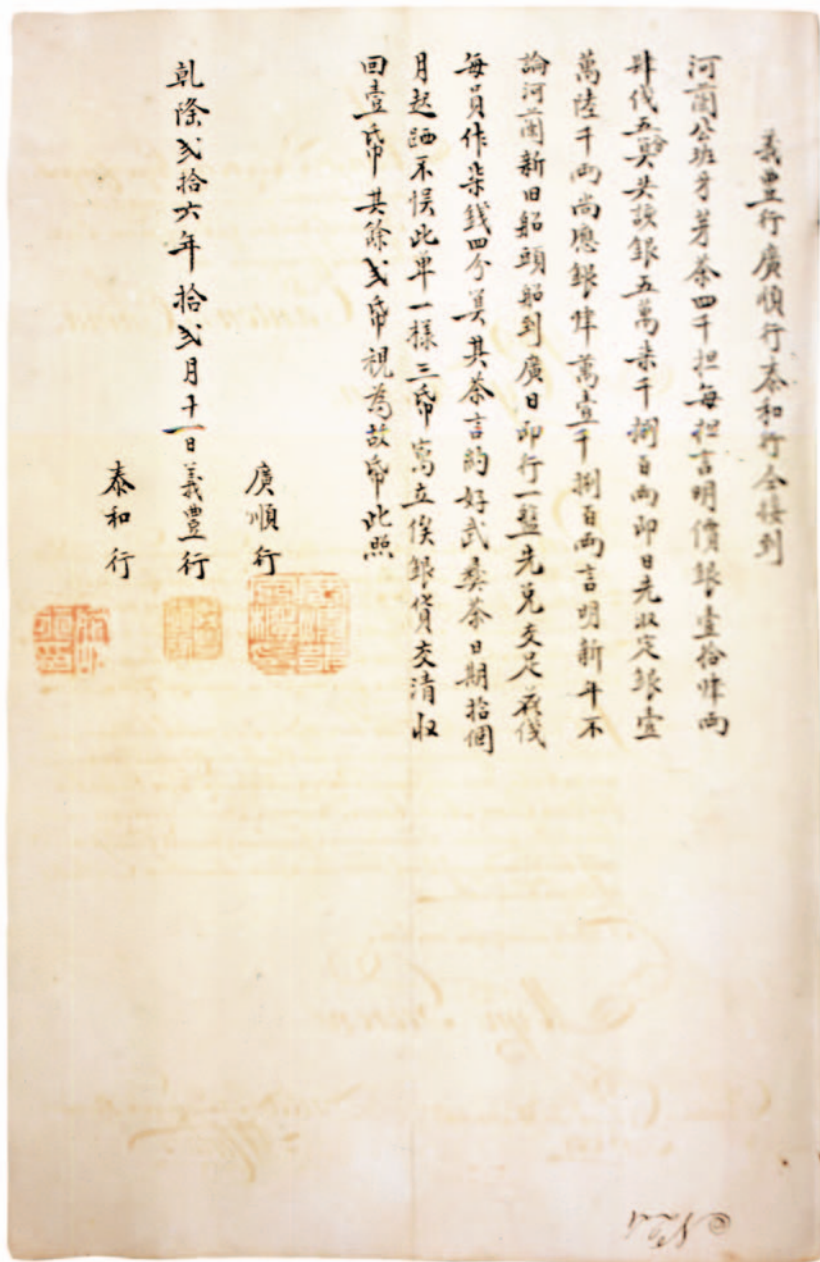 義豐行廣順行泰和行仝接到
河蘭公班牙芽茶四千担每担言明價銀壹拾肆両
肆伐五分算共該銀五萬柒千捌百両即日先收定銀壹
萬陸千両尚應銀肆萬壹千捌百両言明新年不
論河蘭新旧船頭船到廣日即行一盤先兌交足花伐
每員作柒錢四分算其茶言約好武彝茶日期拾個
月起 不悞此單一樣三帋為立俟銀貨交清收
回壹帋其餘弍帋視為故帋此照
廣順行
乾隆弍拾六年拾弍月十一日義豐行
泰和行